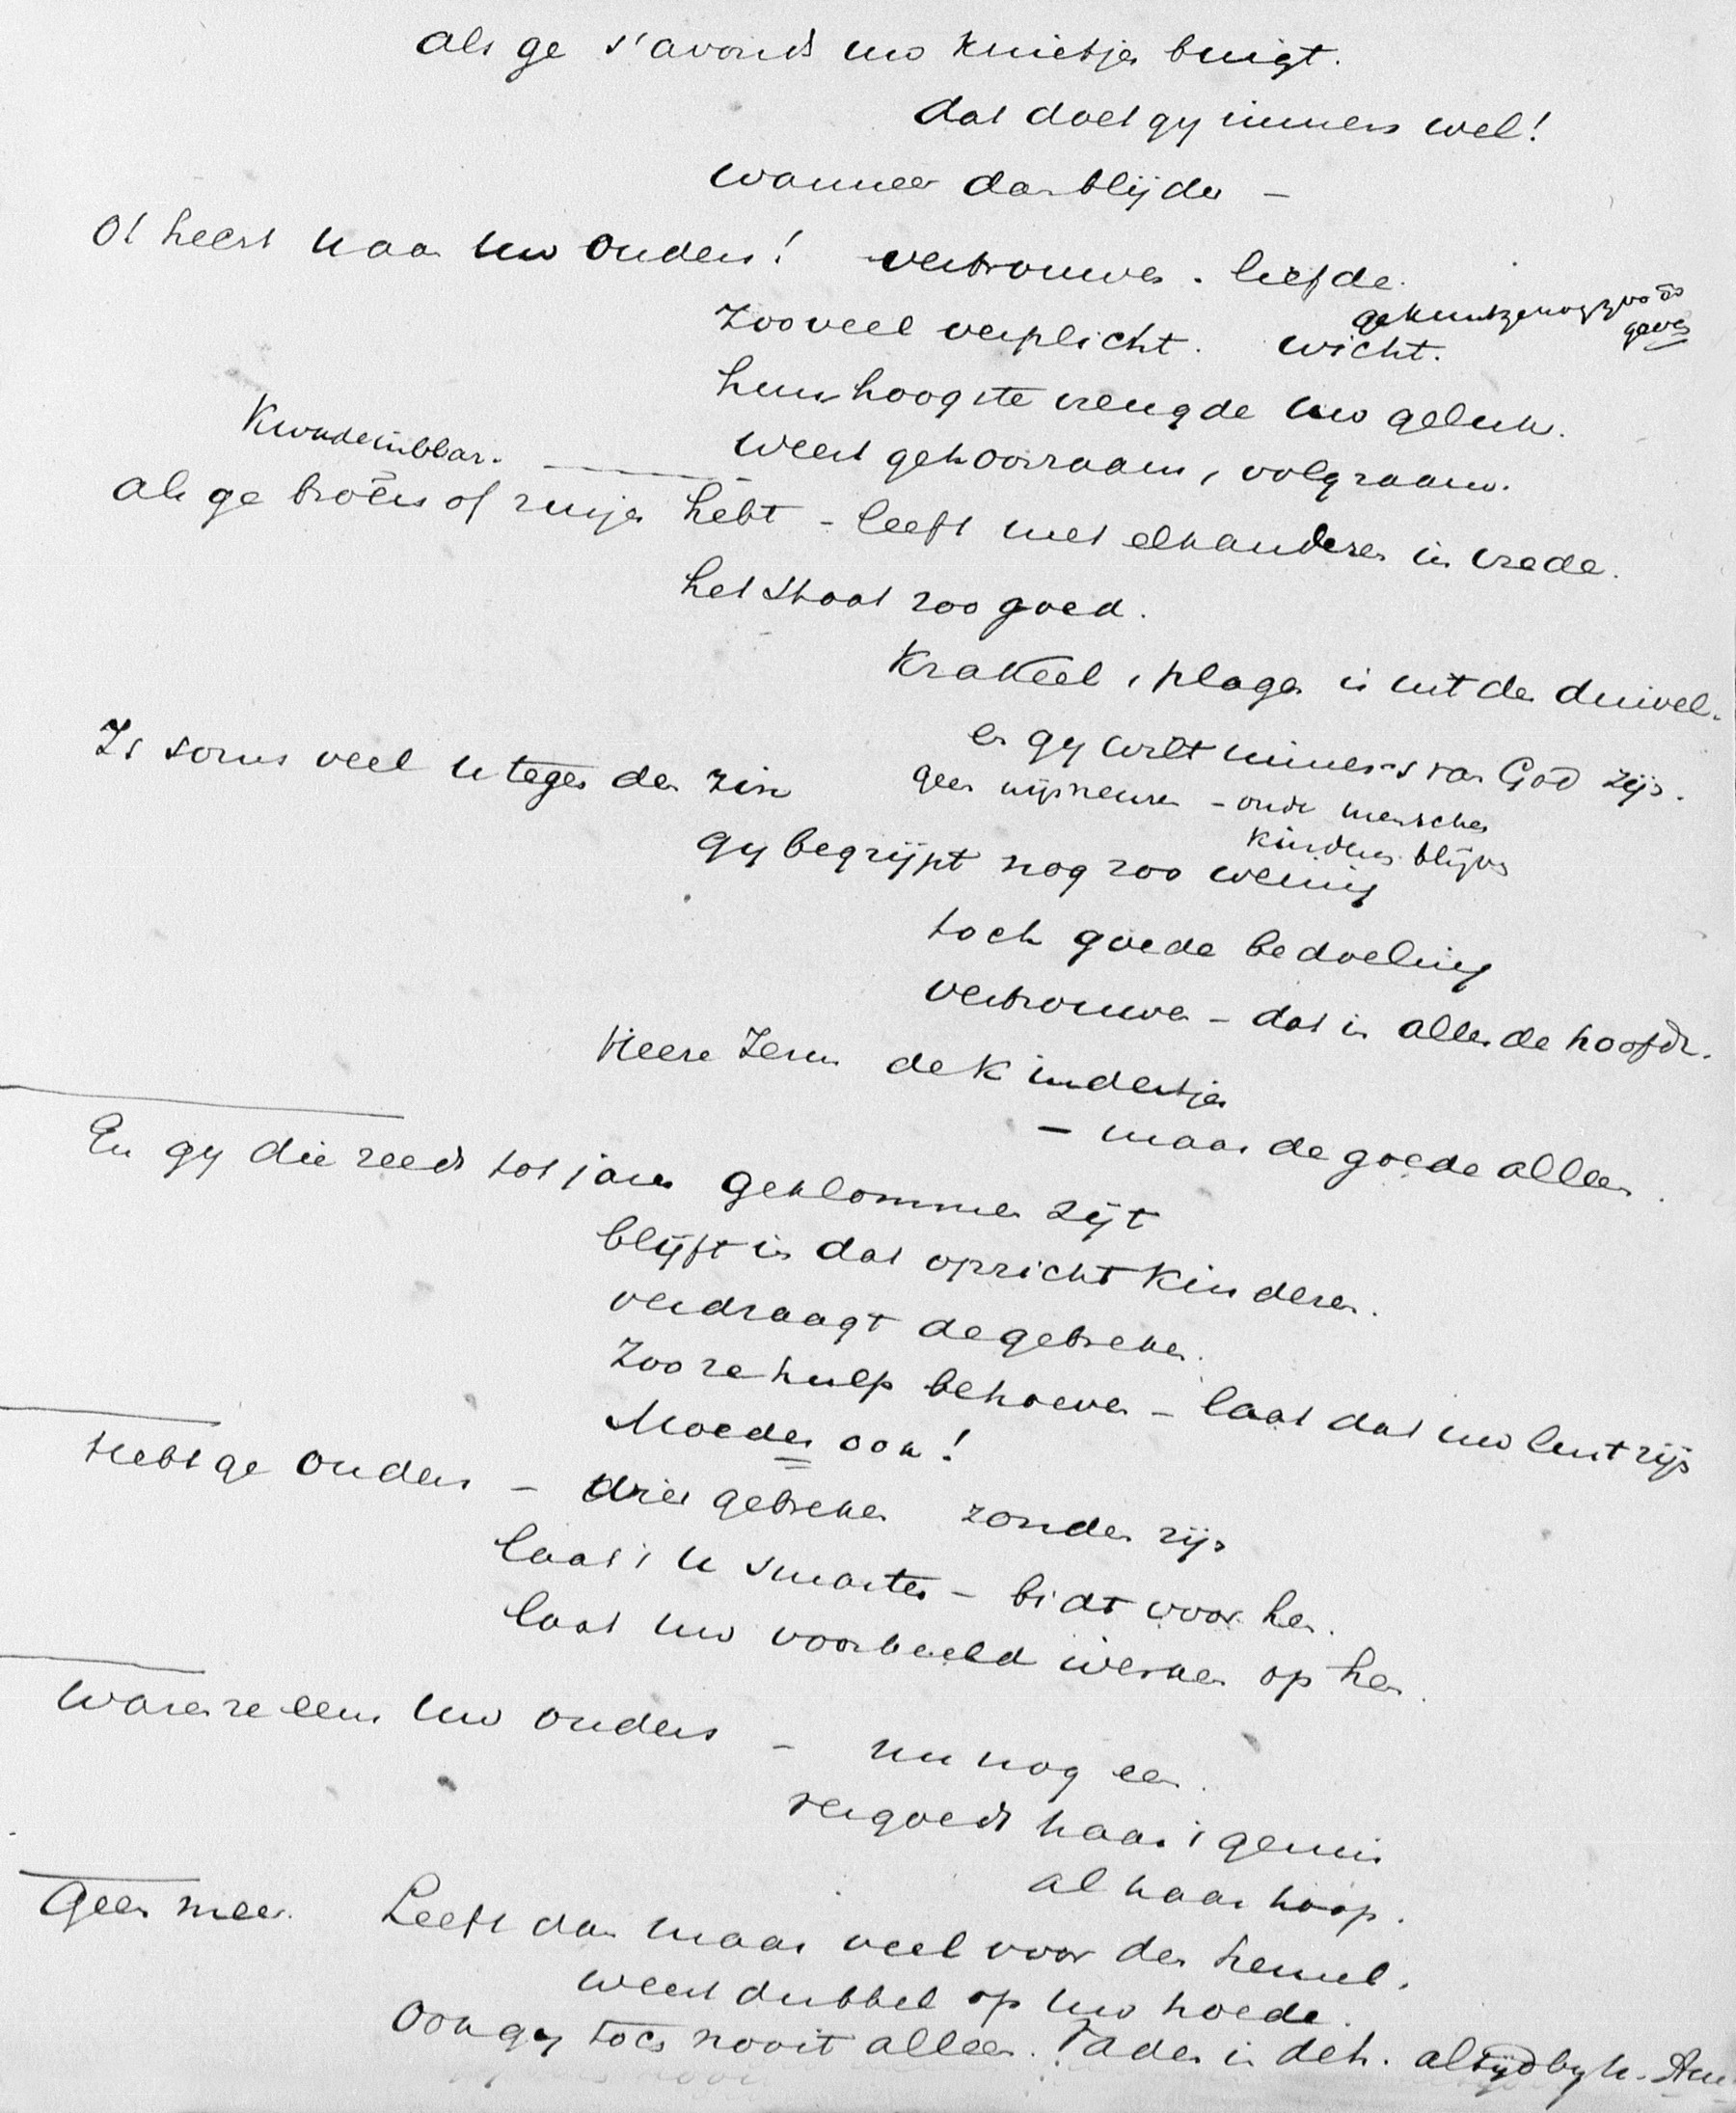 Als ge s'avonds uw knietjes buigt.
dat doet gy immers wel!
wanneer dan blijder –
Ot heers naar uw Ouders! vertrouwen. liefde.
Zooveel verplicht. wicht.
geven
hun hoogste vreugde uw geluk.
weest gehoorzaam, volgzaam.
Als ge broers of zusjes hebt – leeft met elkanderen in vrede.
het staat zoo goed.
Krakeel, plagen is uit den duivel.
en gy wilt immers van God zijn.
Is soms veel u tegen den zin
geen wijsneuzen – oude menschen
kinders blijven
gy begrijpt nog zoo weinig
toch goede bedoeling
vertrouwen – dat is alles de hoofdz.
Heere Jezus de kindertjes
– maar de goede alleen.
En gy die reeds tot jaren geklommen zijt
blijft in dat opzicht kinderen.
verdraagt de gebreken.
Zoo ze hulp behoeven – laat dat uw lust zijn
Moeder ook!
Hebt ge Ouders – wier gebreken zonden zijn
laat 't u smarten – bidt voor hen.
laat uw voorbeeld werken op hen.
Waren ze eens uw ouders – nu nog een.
vergoedt haar 't gemis
al haar hoop.
Geen meer. Leeft dan maar veel voor den hemel.
weest dubbel op uw hoede.
Ook gy toch nooit alleen. Vader in deh. altyd by u. Am